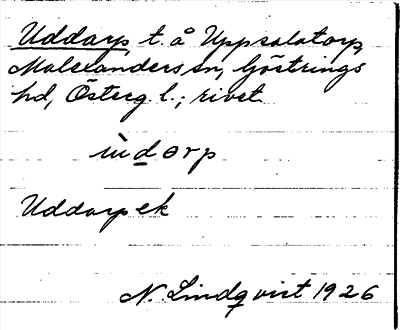 Uddarp, t. å Uppsalatorp,
Malexanders sn, Göstrings
hd, Österg. l.; rivet.
ùdorp
Uddarp ek
N. Lindqvist 1926